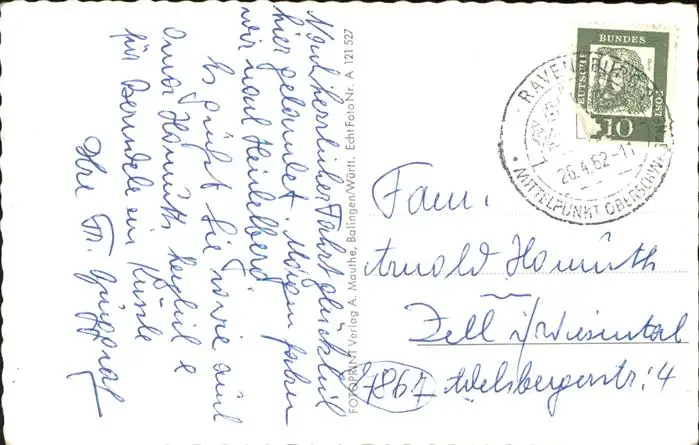 Nach herrlicher Fahrt glücklich
hier gelandet. Morgen fahren
wir nach Heidelberg
Es grüßt Sie sowie auch
Oma Homuth herzlich &
für Berndele ein Küssle
Ihre Fr.
FOTOPRINT Verlag A. Mauthe, Balingen/Württ. Echt Foto Nr. A 121 527
DEUTSCHE
BUNDES
POST
10
RAVENSBURG
26.4.62-11
MITTELPUNKT OBERSCHWABENS
Fam.
Arnold Homuth
Zell i/Wiesental
7867 Adelsbergerstr. 4